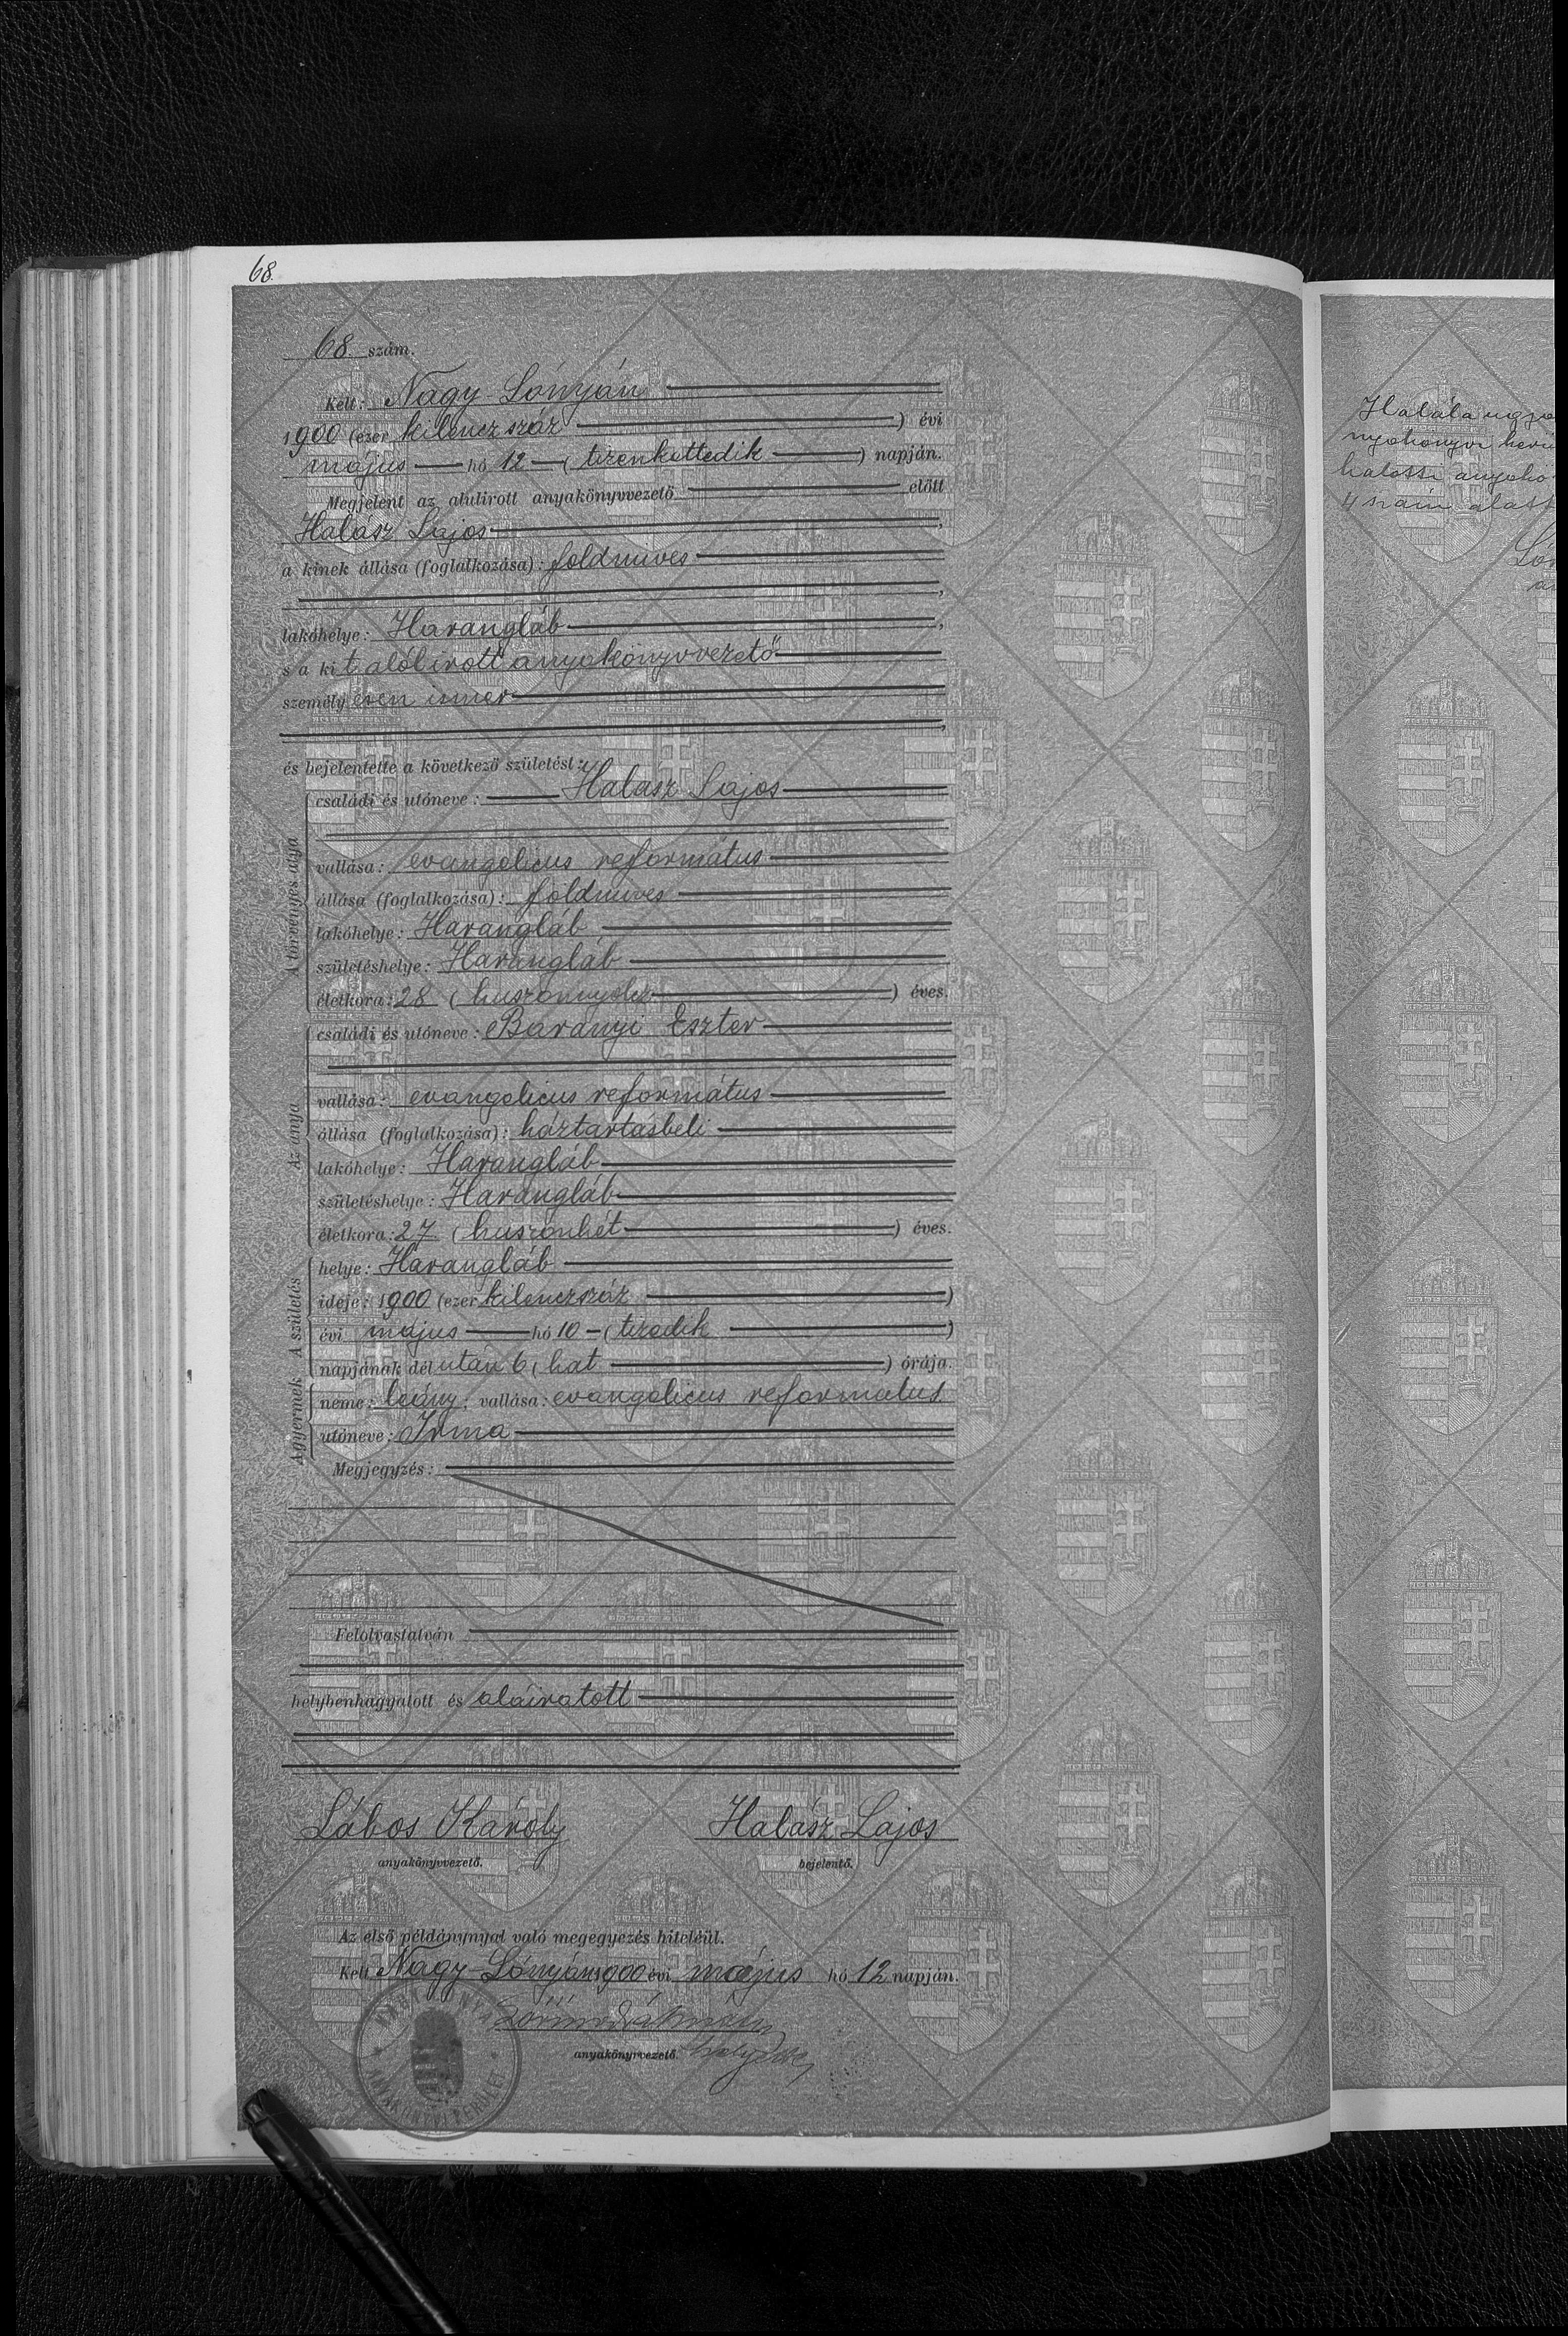 68.
68. szám.
Kelt: Nagy Lónyán
1900 (ezer kilenczszáz) évi
május hó 12 (tizenkettedik) napján.
Megjelent az alulirott anyakönyvvezető előtt
Halász Lajos,
a kinek állása (foglalkozása): földmives
,
lakóhelye: Harangláb,
s a kit alólirott anyakönyvvezető
személyesen ismer
,
és bejelentette a következő születést:
A törvényes atya
családi és utóneve: Halasz Lajos
vallása: evangelicus református
állása (foglalkozása): földmives
lakóhelye: Harangláb
születéshelye: Harangláb
életkora: 28 (huszonnyolcz) éves.
Az anya
családi és utóneve: Baranyi Eszter
vallása: evangelicus református
állása (foglalkozása): háztartásbeli
lakóhelye: Harangláb
születéshelye: Harangláb
életkora: 27 (huszonhét) éves.
A születés
helye: Harangláb
ideje: 1900 (ezer kilenczszáz)
évi május hó 10 (tizedik)
napjának dél után 6 (hat) órája.
A gyermek
neme: leány; vallása: evangelicus reformatus.
utóneve: Irma
Megjegyzés:
Felolvastatván
helybenhagyatott és aláiratott
Lábos Károly Halász Lajos
anyakönyvvezető. bejelentő.
Az első példánynyal való megegyezés hiteléül.
Kelt Nagy Lónyán 1900 évi május hó 12 napján.
anyakönyvvezető
ANYAKÖNYVI KERÜLET
Halála
halotti
4 szám alatt